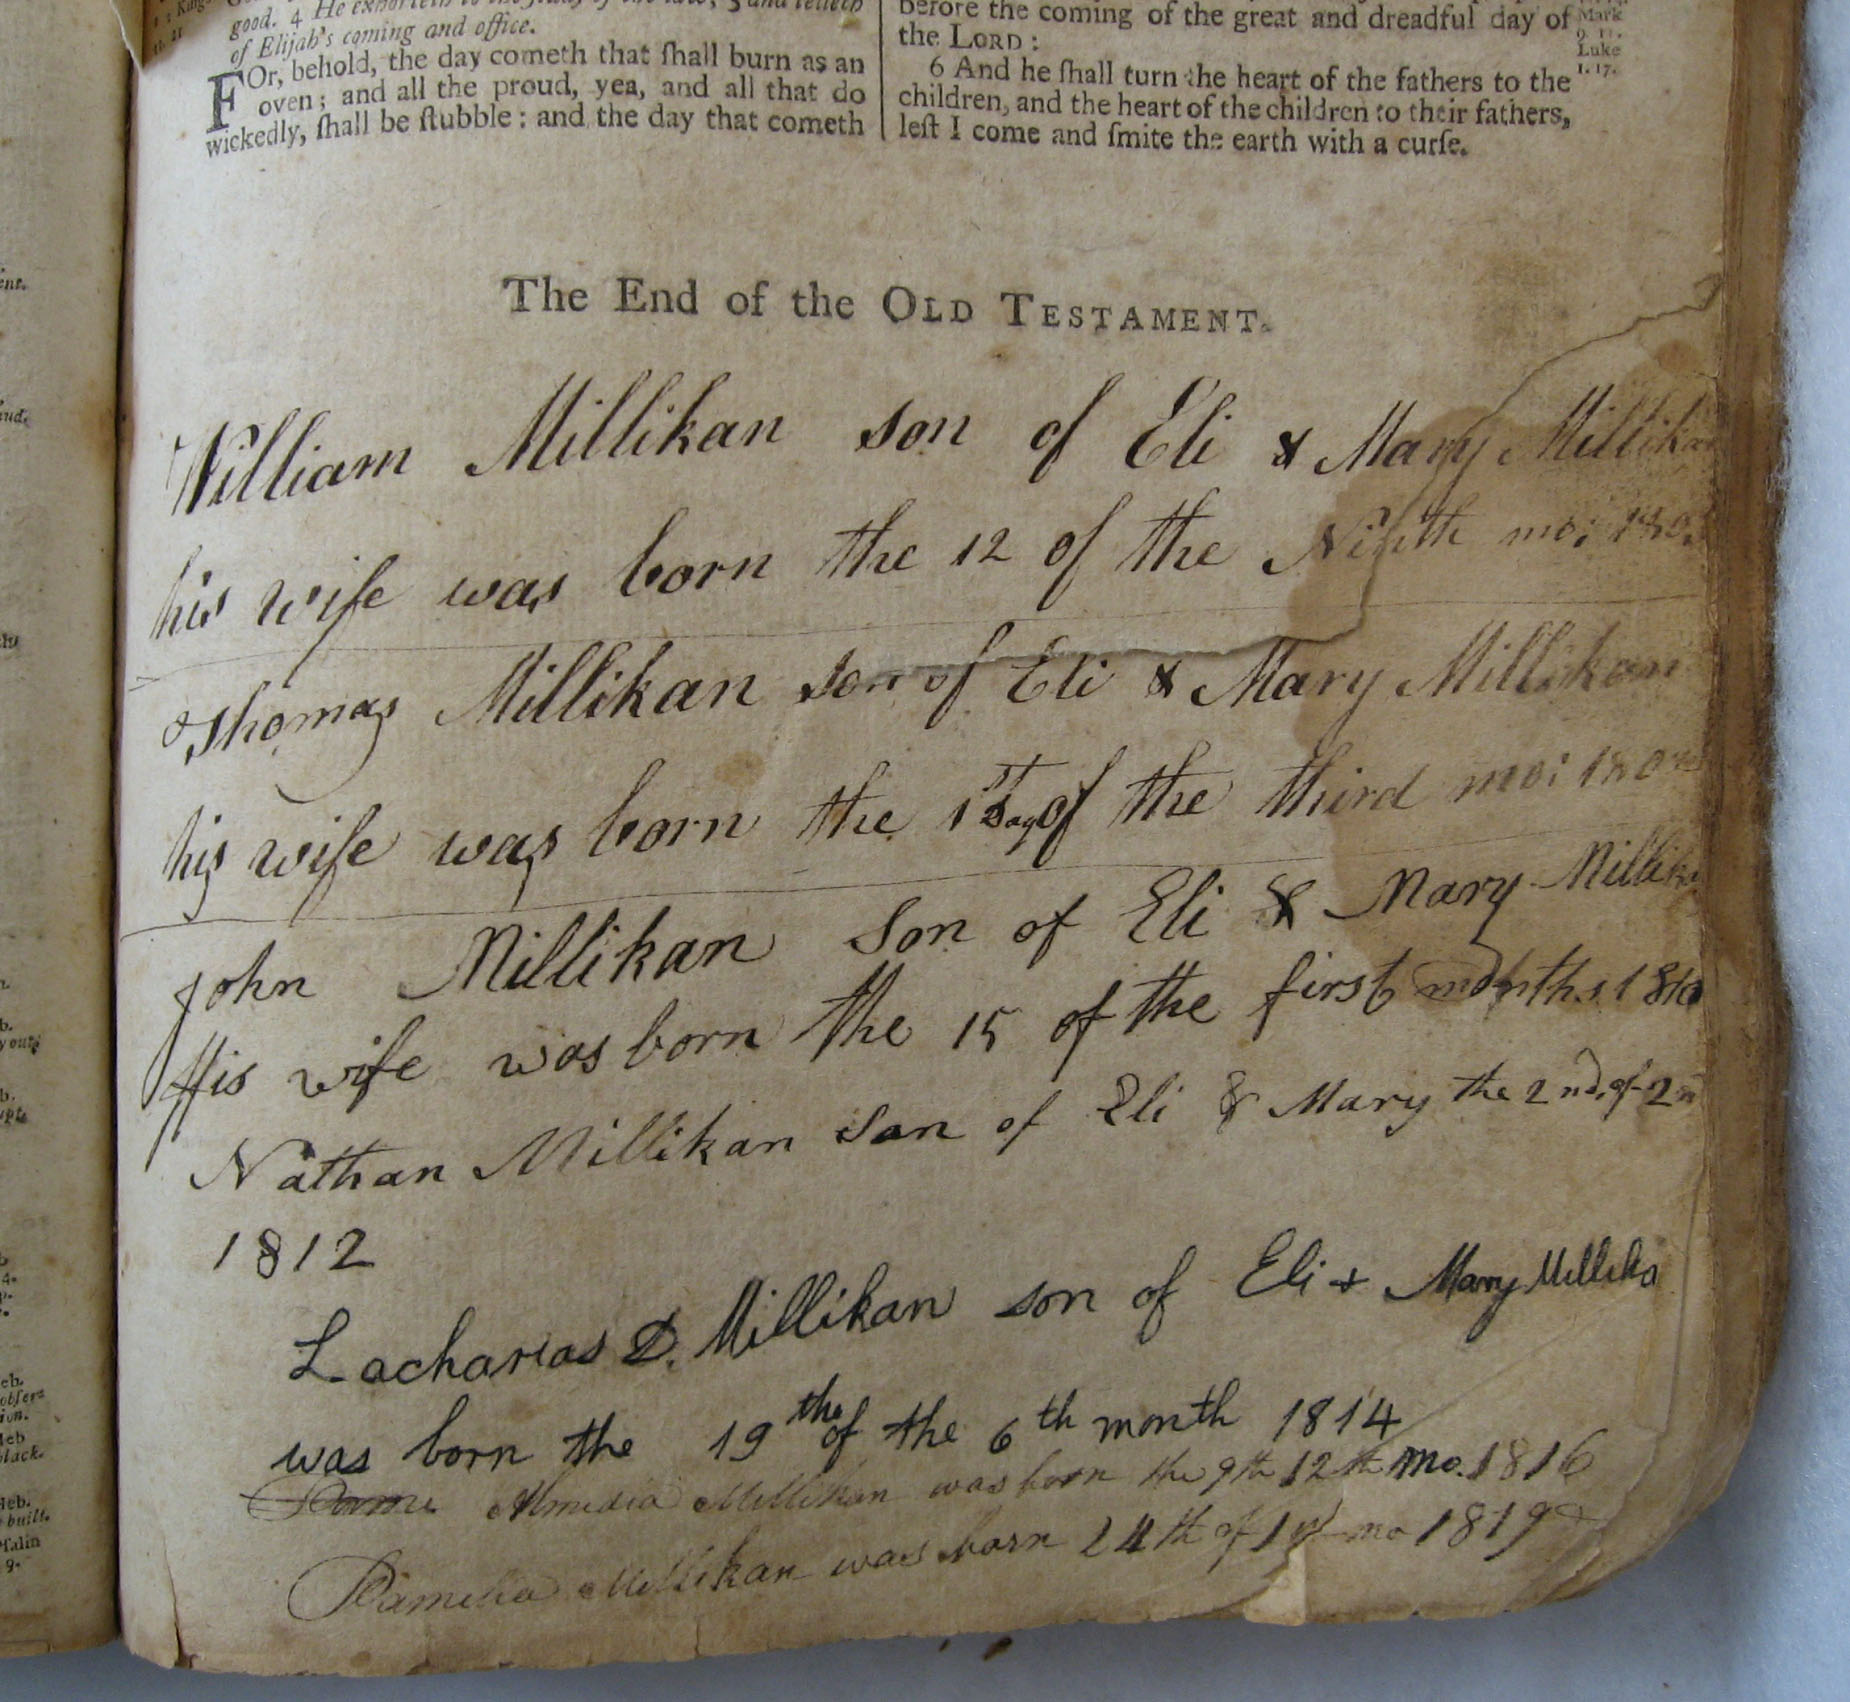 good. 4 He exhorteth to the study of the law, 5 and telleth
of Elijah's coming and office.
FOr, behold, the day cometh that ſhall burn as an
oven; and all the proud, yea, and all that do
wickedly, ſhall be ſtubble: and the day that cometh
before the coming of the great and dreadful day of
the LORD:
6 And he ſhall turn the heart of the fathers to the
children, and the heart of the children to their fathers,
leſt I come and ſmite the earth with a curſe.
Mark
9. 11.
Luke
1. 17.
The End of the OLD TESTAMENT.
William Millikan son of Eli & Mary Millikan
his wife was born the 12 of the Ninth mo:
Thomas Millikan son of Eli & Mary Millikan
his wife was born the 1st Day of the third mo:
John Millikan Son of Eli & Mary Millika
His wife was born the 15 of the first months 1810
Nathan Millikan san of Eli & Mary the 2nd, of 2n
1812
Zacharias D. Millikan son of Eli + Mary Millika
was born the 19th of the 6th month 1814
Almedia Millikan was born the 9th 12th mo. 1816
Pamelia Millikan was born 24th of mo 1819